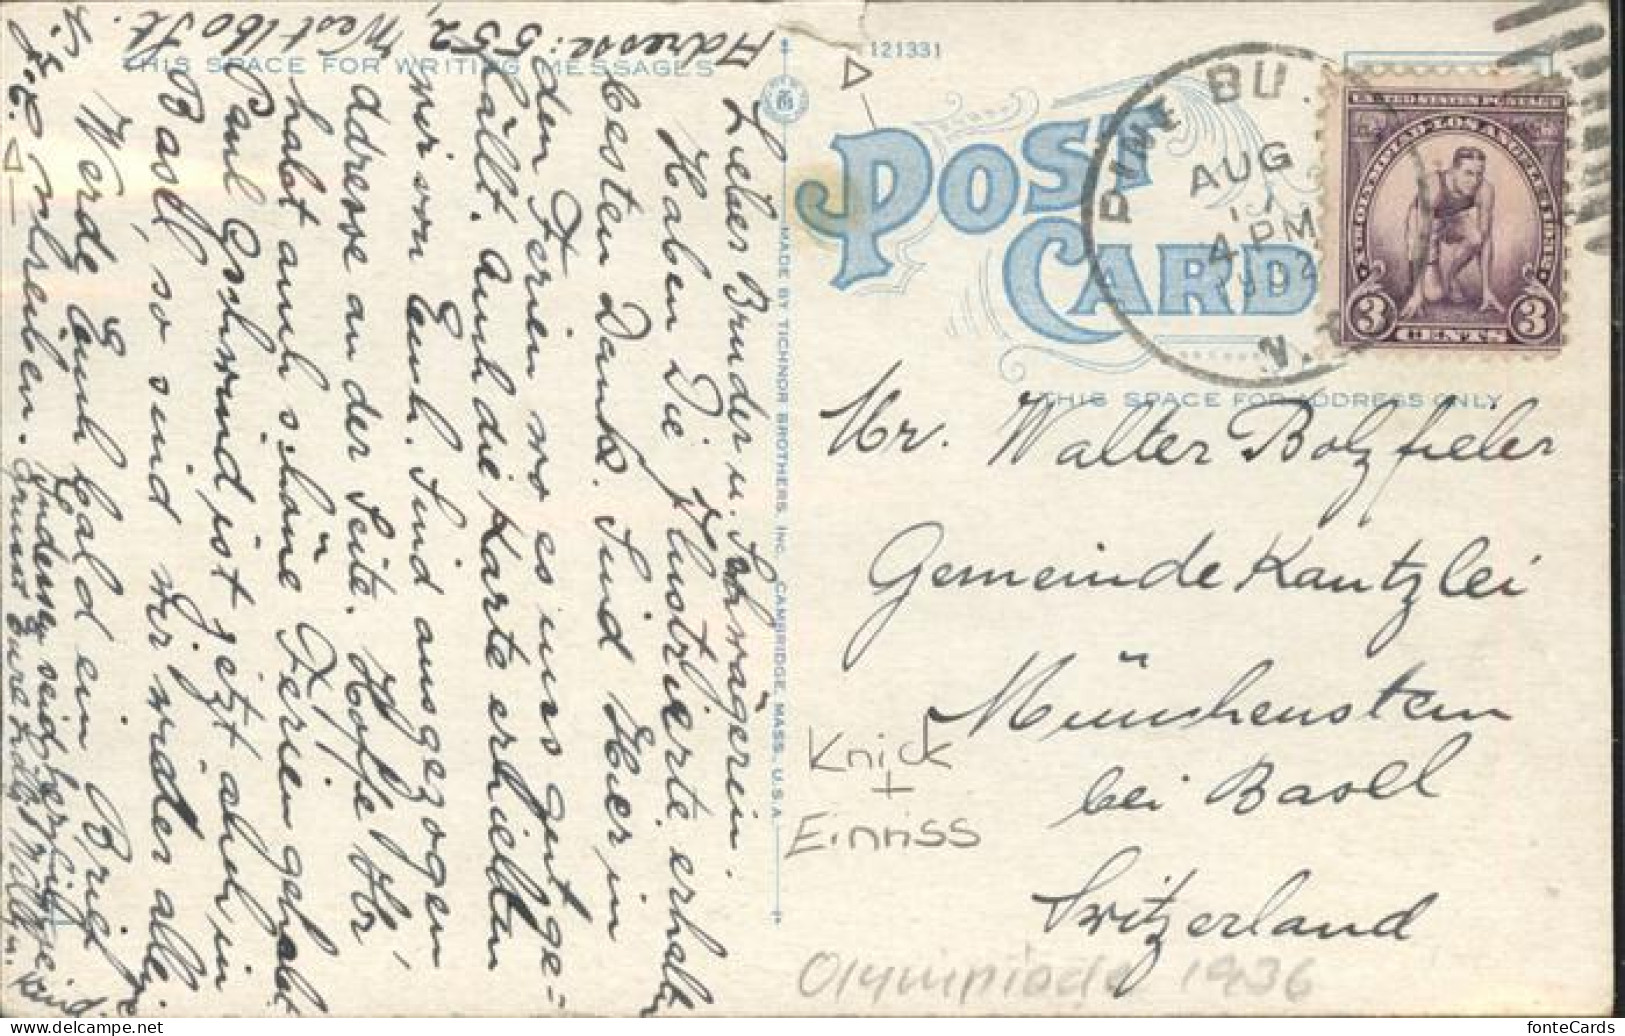 THIS SPACE FOR WRITING MESSAGES
Adresse: 552,
West 160 St.
N.Y.
Lieber Bruder u. Schwägerin.
Haben Die Jlustrierte erhalten
besten Dank. Sind Hier in
den Ferien wo es uns gut ge=
fällt. Auch die Karte erhielten
wir von Euch. Sind ausgezogen
Adresse an der Seite. Hoffe Ihr
habt auch schöne Ferien gehabt
Paul Gschwind ist jetzt auch in
Basel, so sind wir wieder allein
Werde Euch bald ein Brief
schreiben.
Indessen seid herzlich
Eure
MADE BY TICHNOR BROTHERS, INC. CAMBRIDGE, MASS., U.S.A.
121331
POST CARD
PINE BU
AUG
4 PM
N.
U NITED STATES POSTAGE
X OLYMPIAD-LOS ANGELES
3 CENTS 3
THIS SPACE FOR ADDRESS ONLY
Mr. Walter Bolzfieler
Gemeinde Kantzlei
Münchenstein
bei Basel
Switzerland
Knick
+
Einriss
Olympiade 1936
fonteCards